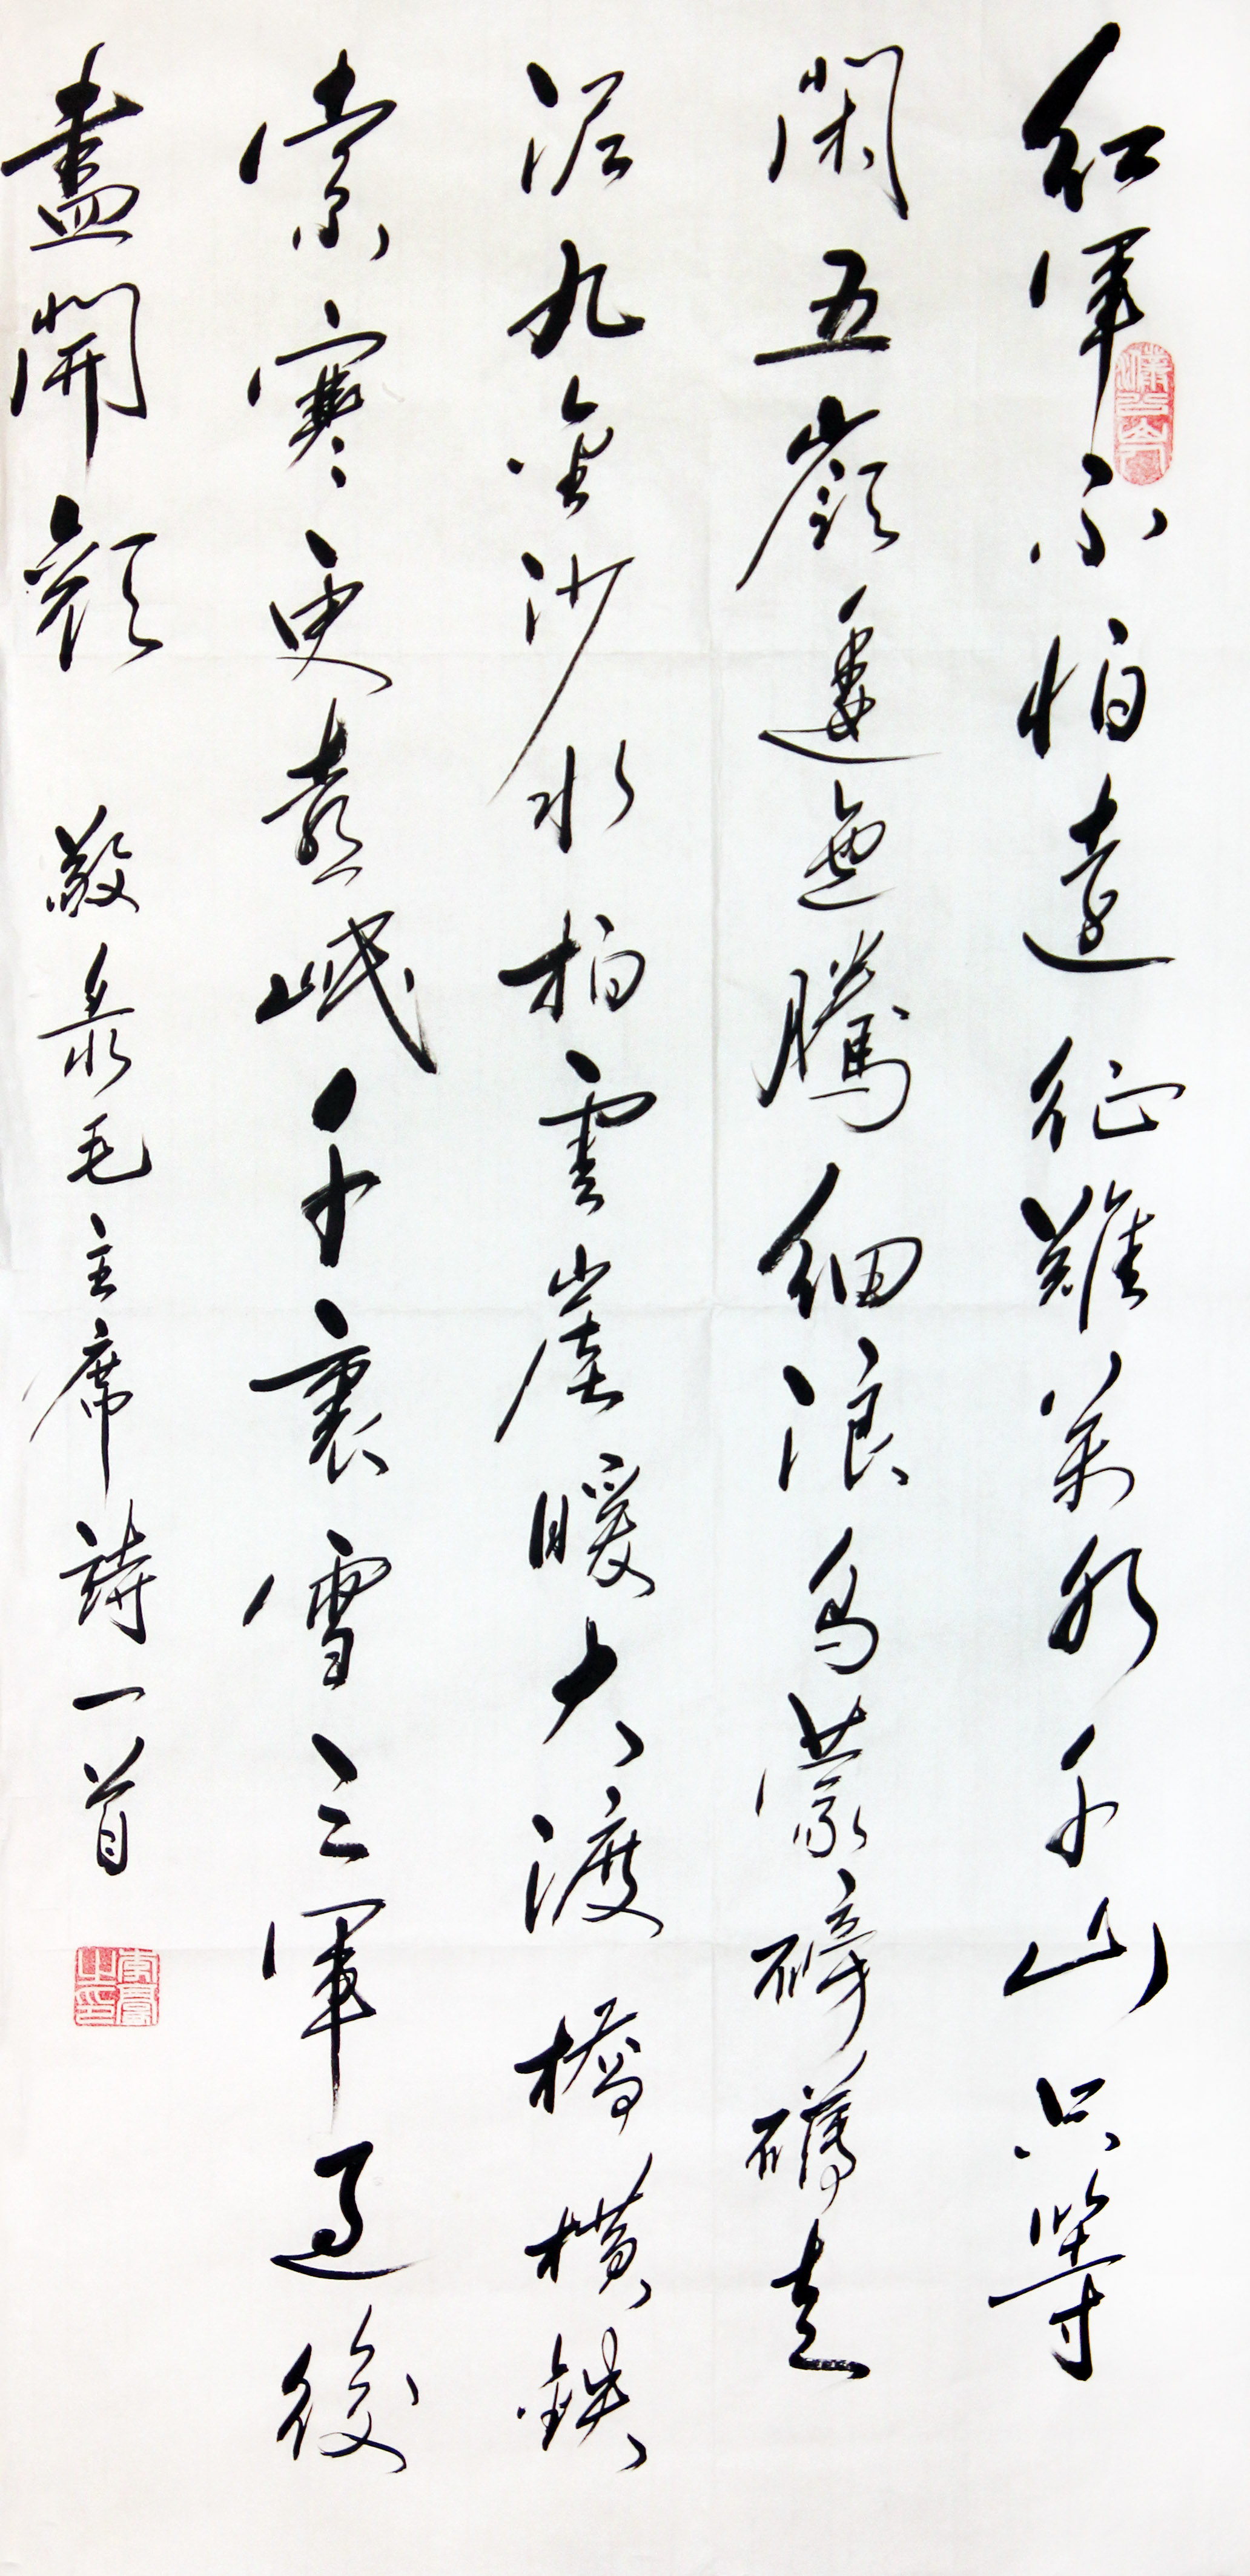 紅軍不怕遠征難萬水千山只等
閑五嶺逶迤騰細浪烏蒙磅礴走
泥丸金沙水拍雲崖暖大渡橋橫鐵
索寒更喜岷千裏雪三軍過後
盡開顏 敬录毛主席詩一首